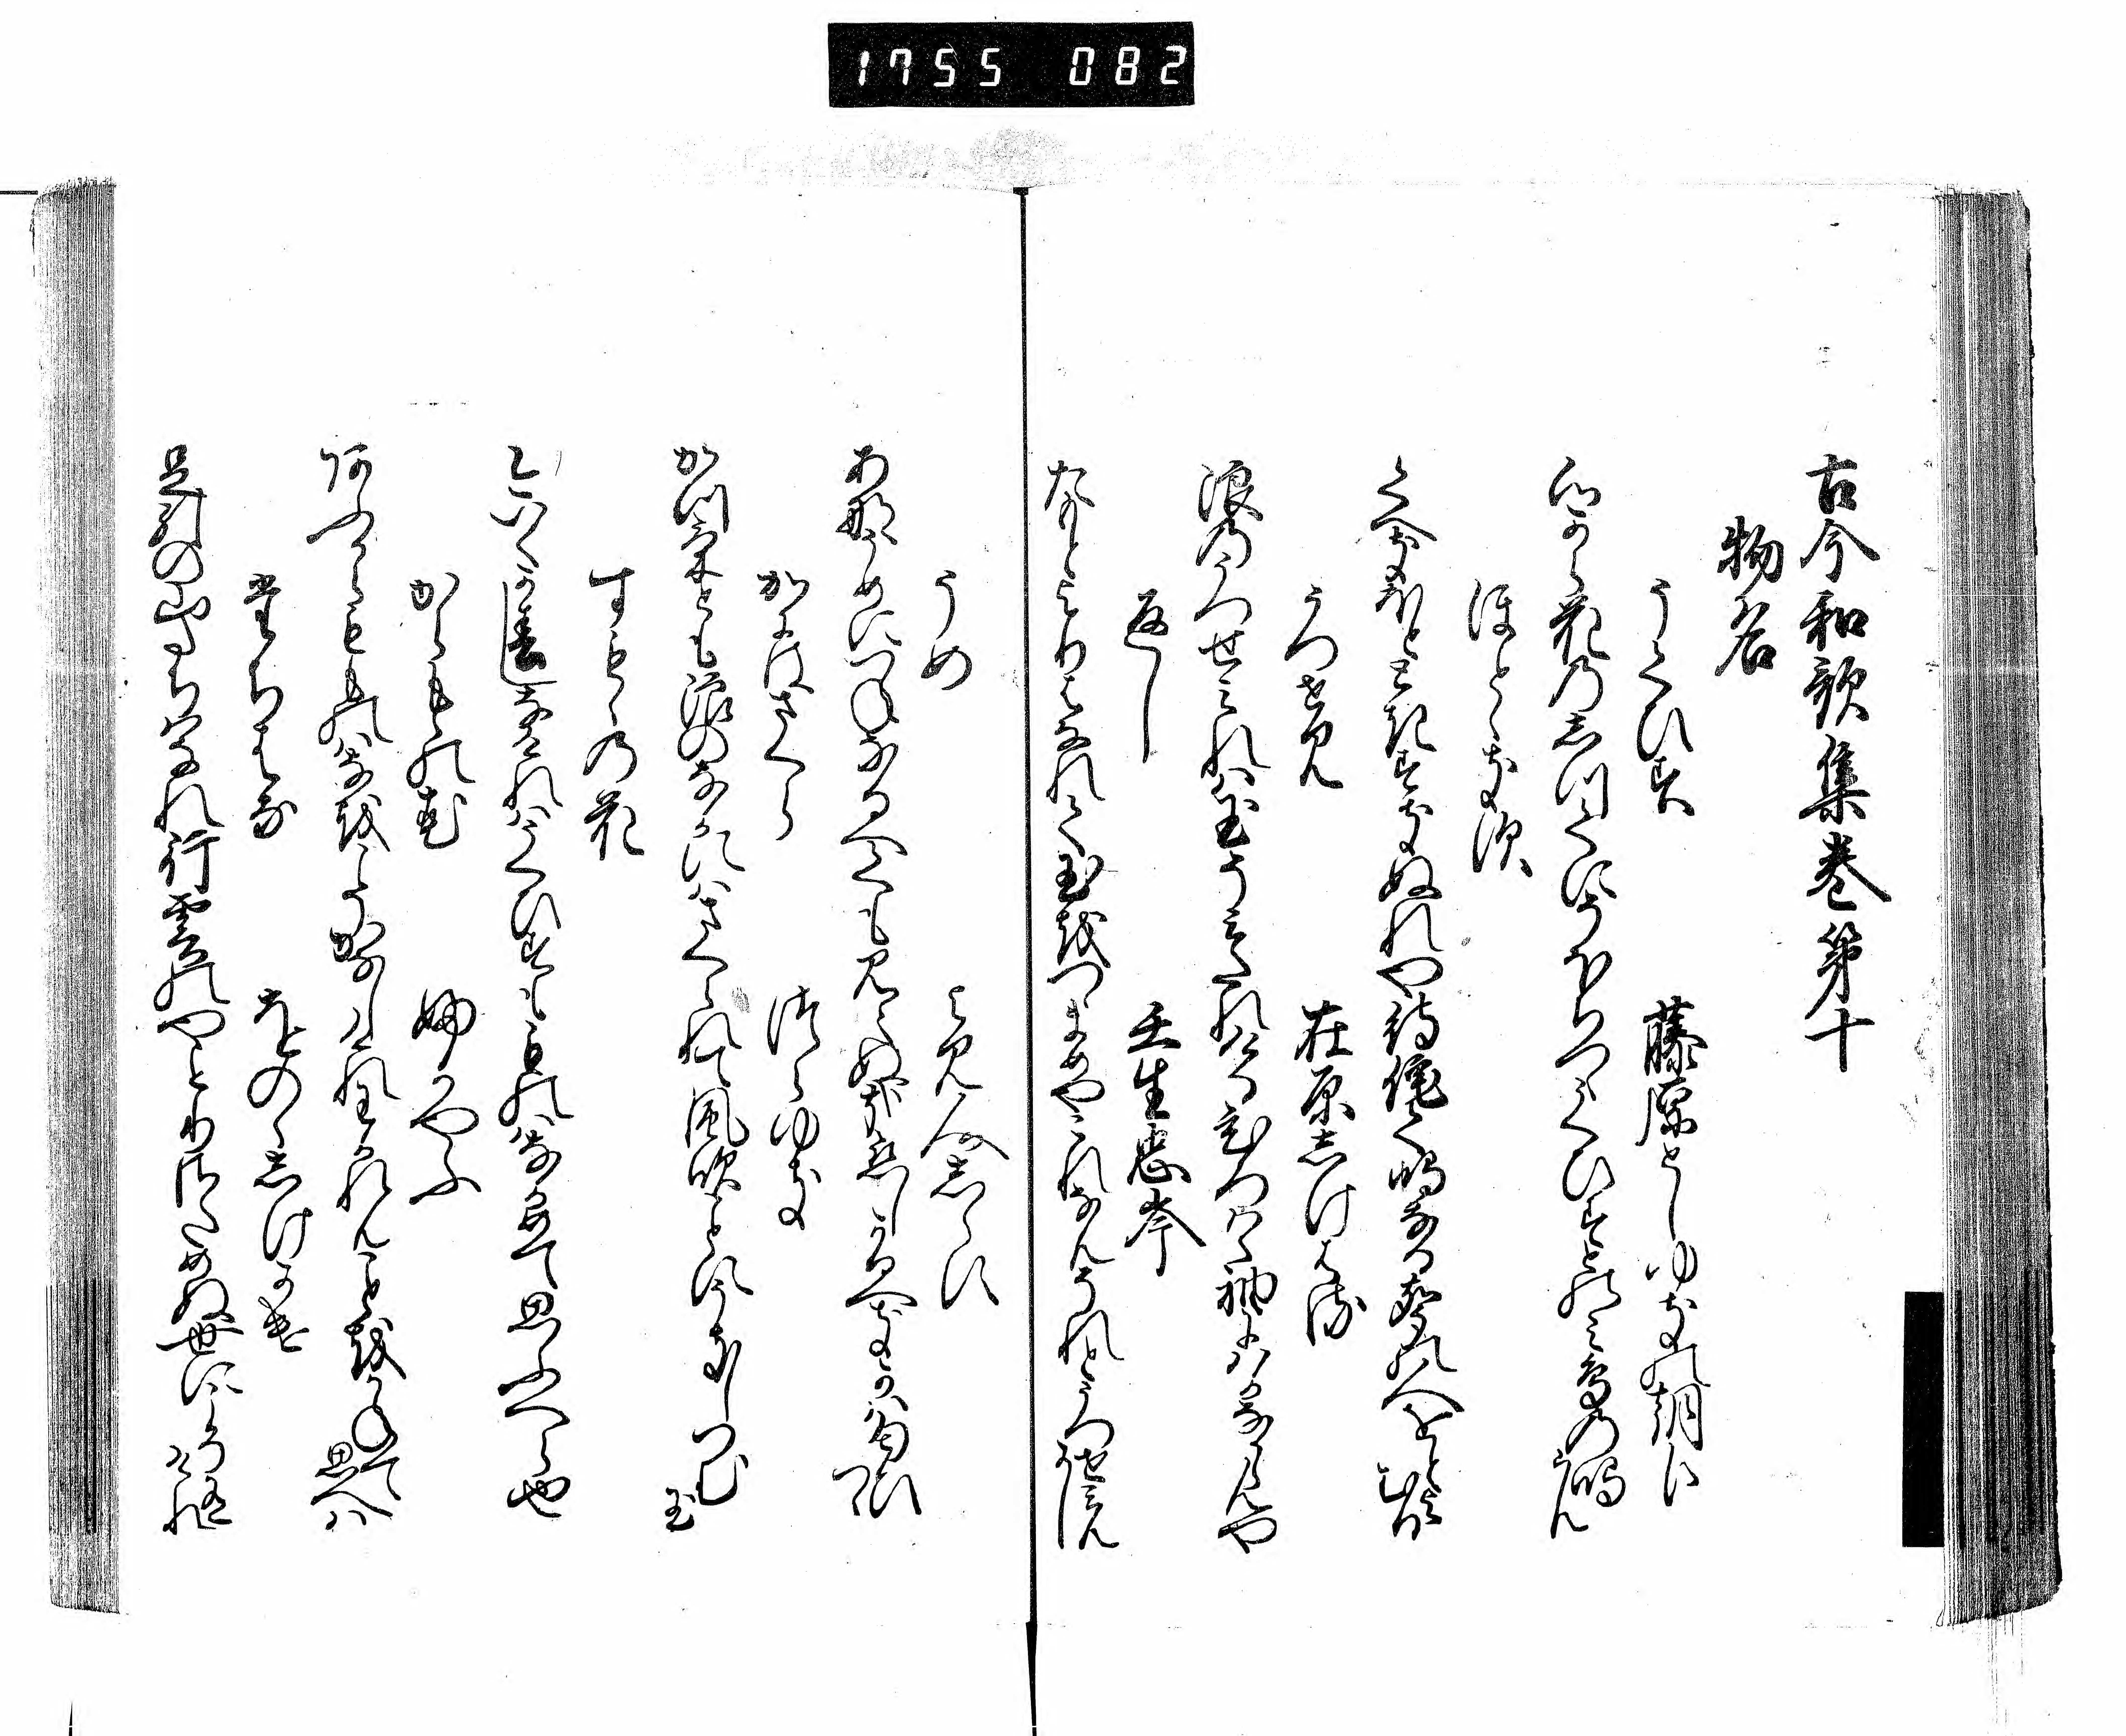 1755 082
古今和歌集巻第十
物名
うくひす
藤原としゆきの朝臣
心から花のしつくにそほちつゝうくひすとのみ鳥の鳴らん
ほとゝきす
くへきほとときすきぬれや待侘て鳴なる声の人をとよむる
うつせみ
在原しけはる
浪のうつせみれは玉そみたれけるひろはゝ袖にはかなからんや
返し
壬生忠岑
たもとよりはなれて玉をつゝまめやこれなんそれとうつせ見んかし
うめ
よみ人しらす
あなうめにつねなるへくも見えぬ哉恋しかるへきかは匂ひつゝ
かにはさくら
つらゆき
かつけとも浪のなかにはさくられて風吹ことにうきしつむ玉
すもゝの花
今いくか春しなけれはうくひすも物はなかめて思ふへら也
からもゝの花
ふかやふ
あふからもものはなをこそかなしけれわかれんことをかねて思へは
たちはな
をのゝしけかけ
足引の山たちはなれ行雲のやとりさためぬ世にこそ有けれ